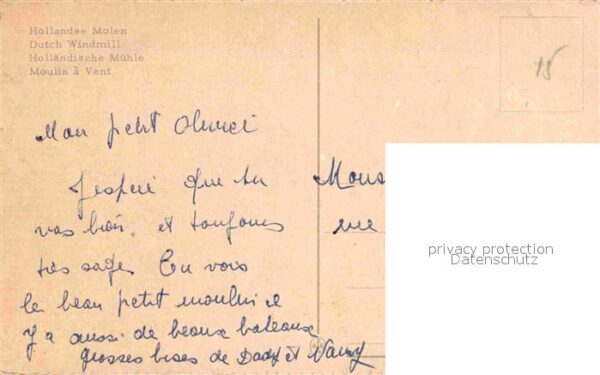 Hollandse Molen
Dutch Windmill
Holländische Mühle
Moulin à Vent
15
Mon petit Olivier
J'espère que tu
vas bien, et toujours
très sage. Tu vois
le beau petit moulin il
y a aussi de beaux bateaux
grosses bises de Dady et Nany
Mons
rue
privacy protection
Datenschutz